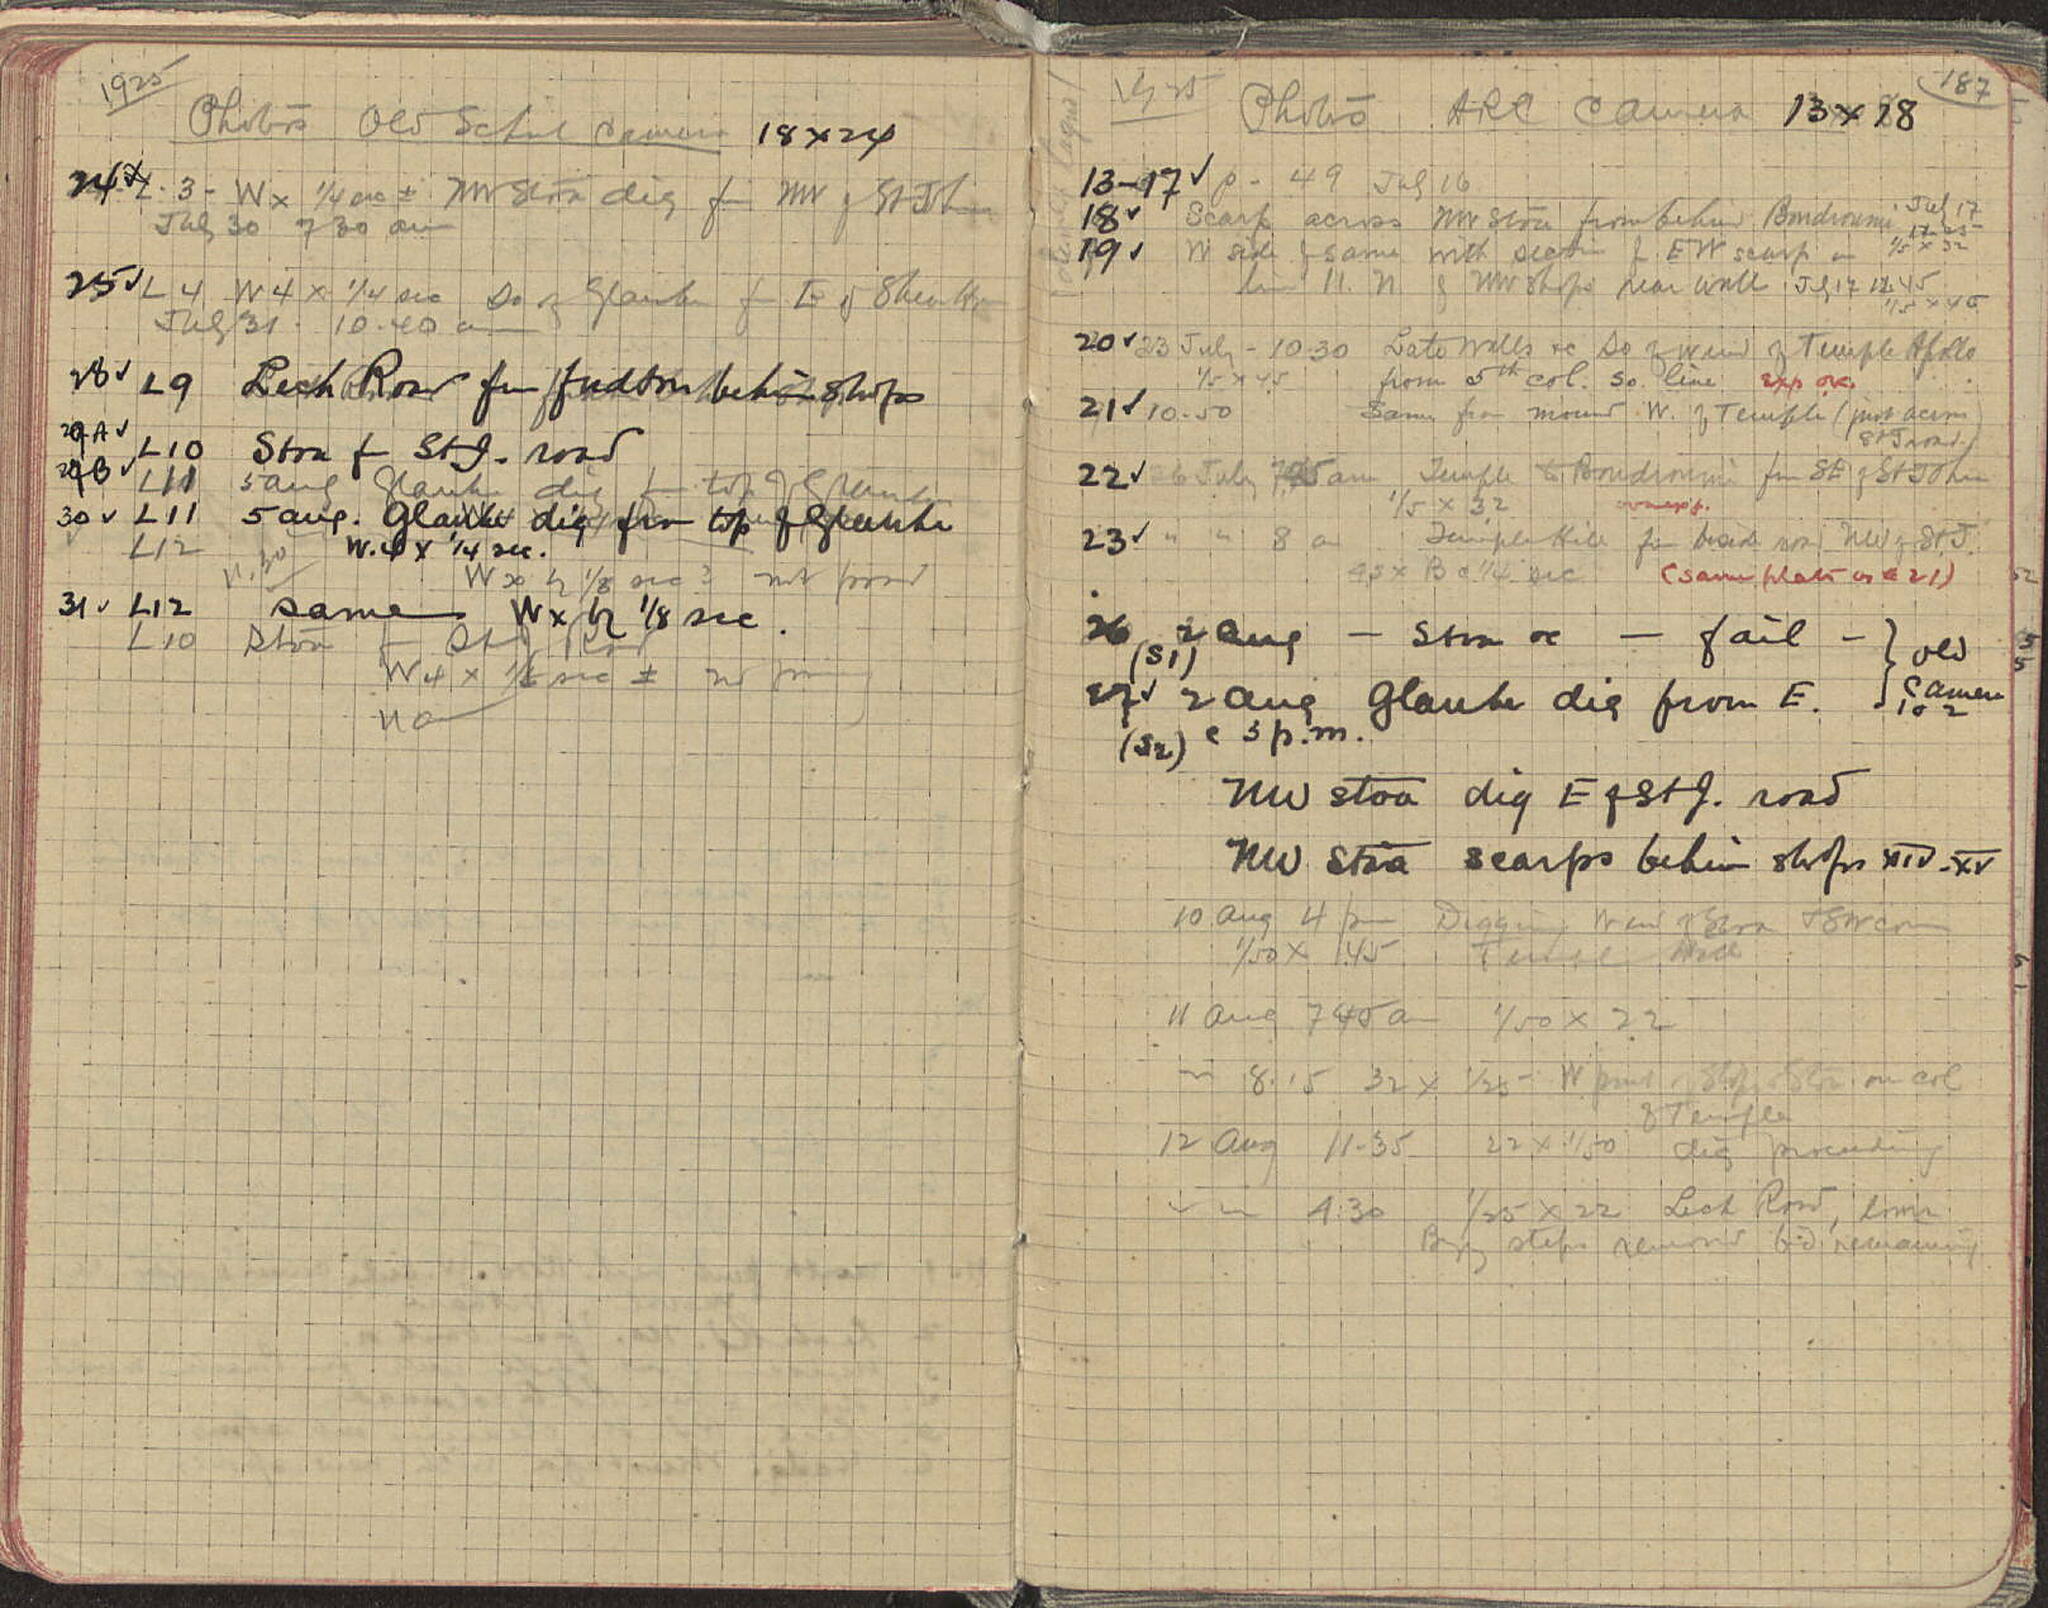 1925
Photos Old School Camera 18 x 24
24 L. 3 - W x 1/4 sec ± NW Stoa dig fm NW of St John
July 30 7 30 am
25 ✓ L 4 W 4 x 1/4 sec So of Glauke fm E of
July 31. 10.40 am
28 ✓ L9 Lech Road fm behind shops
29A ✓ L10 Stoa fm St J. road
29B ✓ L11 5 aug Glauke dig fm top of Glauke
30 ✓ L11 5 aug. Glauke dig from top of Glauke
L12 W. 4 x 1/4 sec.
W x by 1/8 sec?
31 ✓ L12 same W x by 1/8 sec.
L10 Stoa fm St J Road
W 4 x sec ±
no
187
1925 Photos ARC Camera 13 x 18
13-17 ✓ p - 49 July 16
18 ✓ Scarp across NW Stoa from behind Boudroumi July 17
19 ✓ W side of same with section of E W scarp on 1/5 x 32
line 11. N of NW Shops near wall. July 17 12.45
1/5 x 45
20 ✓ 23 July - 10.30 Late Walls &c So of W end of Temple Apollo
1/5 x 45 from 5th col. So. line exp ok.
21 ✓ 10-50 Same from mound W. of Temple (just across
St J road)
22 ✓ 26 July am Temple to Boudroumi fm SE of St John
1/5 x 32 overexp.
23 ✓ " " 8 am Temple Hill fm road NW of St J.
45 x 1/4 sec (same plate as 21)
26 2 Aug - Stoa &c - fail - } old
(S1)
27 ✓ 2 Aug Glauke dig from E. } Camera
1 & 2
(S2) c 3 p.m.
NW stoa dig E of St J. road
NW Stoa scarps behind shops XIV-XV
10 Aug 4 pm Digging W end of Stoa & SW corn
1/50 x 45 Temple Hill
11 Aug 7 45 am 1/50 x 22
" 8.15 32 x 1/25 W Shops Stoa on col
of Temple
12 Aug 11-35 22 x 1/50 dig proceeding
" " 4:30 1/25 x 22 Lech Road,
Byz steps removed remaining